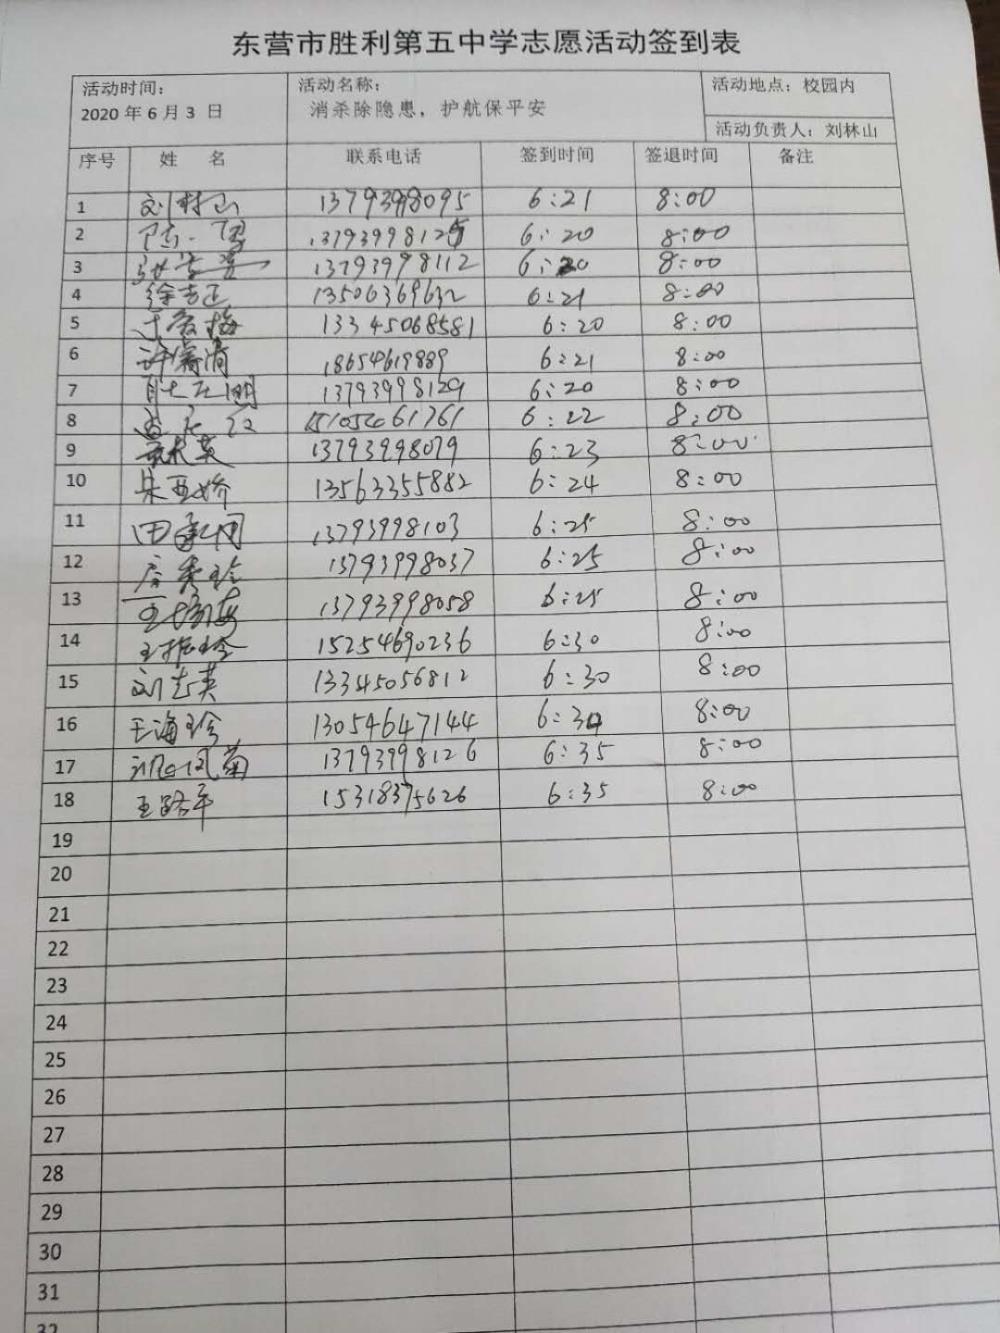 东营市胜利第五中学志愿活动签到表
活动时间： 活动名称： 活动地点：校园内
2020 年 6 月 3 日 消杀除隐患，护航保平安
活动负责人：刘林山
序号 姓 名 联系电话 签到时间 签退时间 备注
1 刘林山 13793998095 6:21 8:00
2 13793998125 6:20 8:00
3 13793998112 6:20 8:00
4 徐志正 13506369632 6:21 8:00
5 13345068581 6:20 8:00
6 18654619889 6:21 8:00
7 13793998129 6:20 8:00
8 15105461761 6:22 8:00
9 13793998079 6:23 8:00
10 朱西娇 13563355882 6:24 8:00
11 13793998103 6:25 8:00
12 13793998037 6:25 8:00
13 13793998058 6:25 8:00
14 王振玲 15254690236 6:30 8:00
15 刘志英 13345056812 6:30 8:00
16 王海珍 13054647144 6:34 8:00
17 祝凤菊 13793998126 6:35 8:00
18 王路平 15318375626 6:35 8:00
19
20
21
22
23
24
25
26
27
28
29
30
31
32